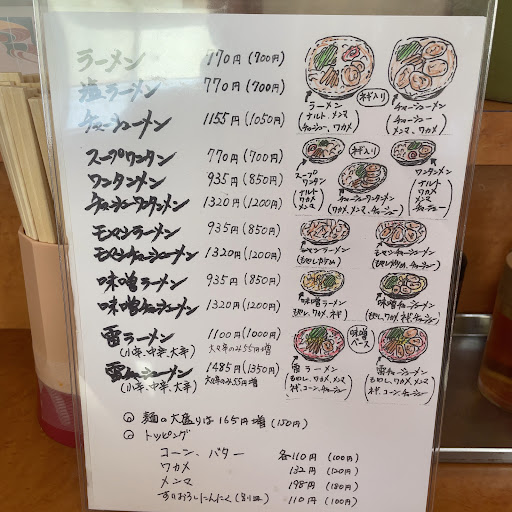 ラーメン 770円(700円)
塩ラーメン 770円(700円)
チャーシューメン 1155円(1050円)
スープワンタン 770円(700円)
ワンタンメン 935円(850円)
チャーシューワンタンメン 1320円(1200円)
モヤシラーメン 935円(850円)
モヤシチャーシューメン 1320円(1200円)
味噌ラーメン 935円(850円)
味噌チャーシューメン 1320円(1200円)
雷ラーメン 1100円(1000円)
(小辛、中辛、大辛) 大辛のみ55円増
雷チャーシューメン 1485円(1350円)
(小辛、中辛、大辛) 大辛のみ55円増
◎ 麺の大盛りは165円増(150円)
◎ トッピング
コーン、バター 各110円(100円)
ワカメ 132円(120円)
メンマ 198円(180円)
すりおろしにんにく(別皿) 110円(100円)
ネギ入り
ラーメン
(ナルト、メンマ
チャーシュー、ワカメ)
チャーシューメン
(チャーシュー
メンマ、ワカメ)
ネギ入り
スープ
ワンタン
(ナルト
ワカメ
メンマ)
チャーシューワンタンメン
(ワカメ、メンマ、チャーシュー)
ワンタンメン
(ナルト
ワカメ
メンマ
チャーシュー)
モヤシラーメン
(もやし炒め)
モヤシチャーシューメン
(もやし炒め、チャーシュー)
味噌ラーメン
(もやし、ワカメ、ネギ)
味噌チャーシューメン
(もやし、ワカメ、ネギ、チャーシュー)
味噌
ベース
雷ラーメン
(もやし、ワカメ、メンマ
ネギ、コーン、チャーシュー)
雷チャーシューメン
(もやし、ワカメ、メンマ
ネギ、コーン、チャーシュー)